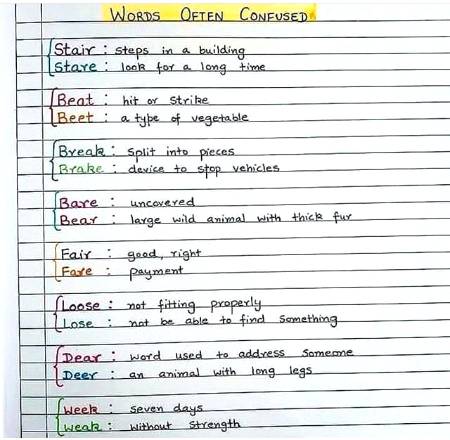 WORDS OFTEN CONFUSED
Stair : steps in a building
Stare : look for a long time
Beat : hit or strike
Beet : a type of vegetable
Break : split into pieces
Brake : device to stop vehicles
Bare : uncovered
Bear : large wild animal with thick fur
Fair : good, right
Fare : payment
Loose : not fitting properly
Lose : not be able to find something
Dear : word used to address someone
Deer : an animal with long legs
Week : seven days
Weak : without strength